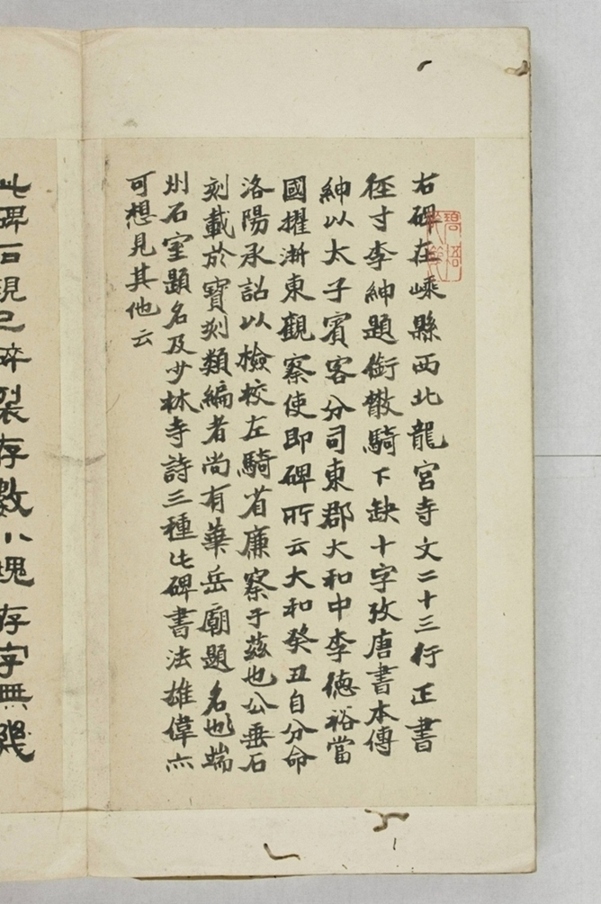 右碑在嵊縣西北龍宮寺文二十三行正書
徑寸李紳題銜散騎下缺十字攷唐書本傳
紳以太子賓客分司東郡大和中李德裕當
國擢浙東觀察使即碑所云大和癸丑自分命
洛陽承詔以檢校左騎省廉察于茲也公垂石
刻載於寶刻類編者尚有華岳廟題名也端
州石室題名及少林寺詩三種此碑書法雄偉亦
可想見其他云
此碑石現已碎裂存數小塊存字無幾